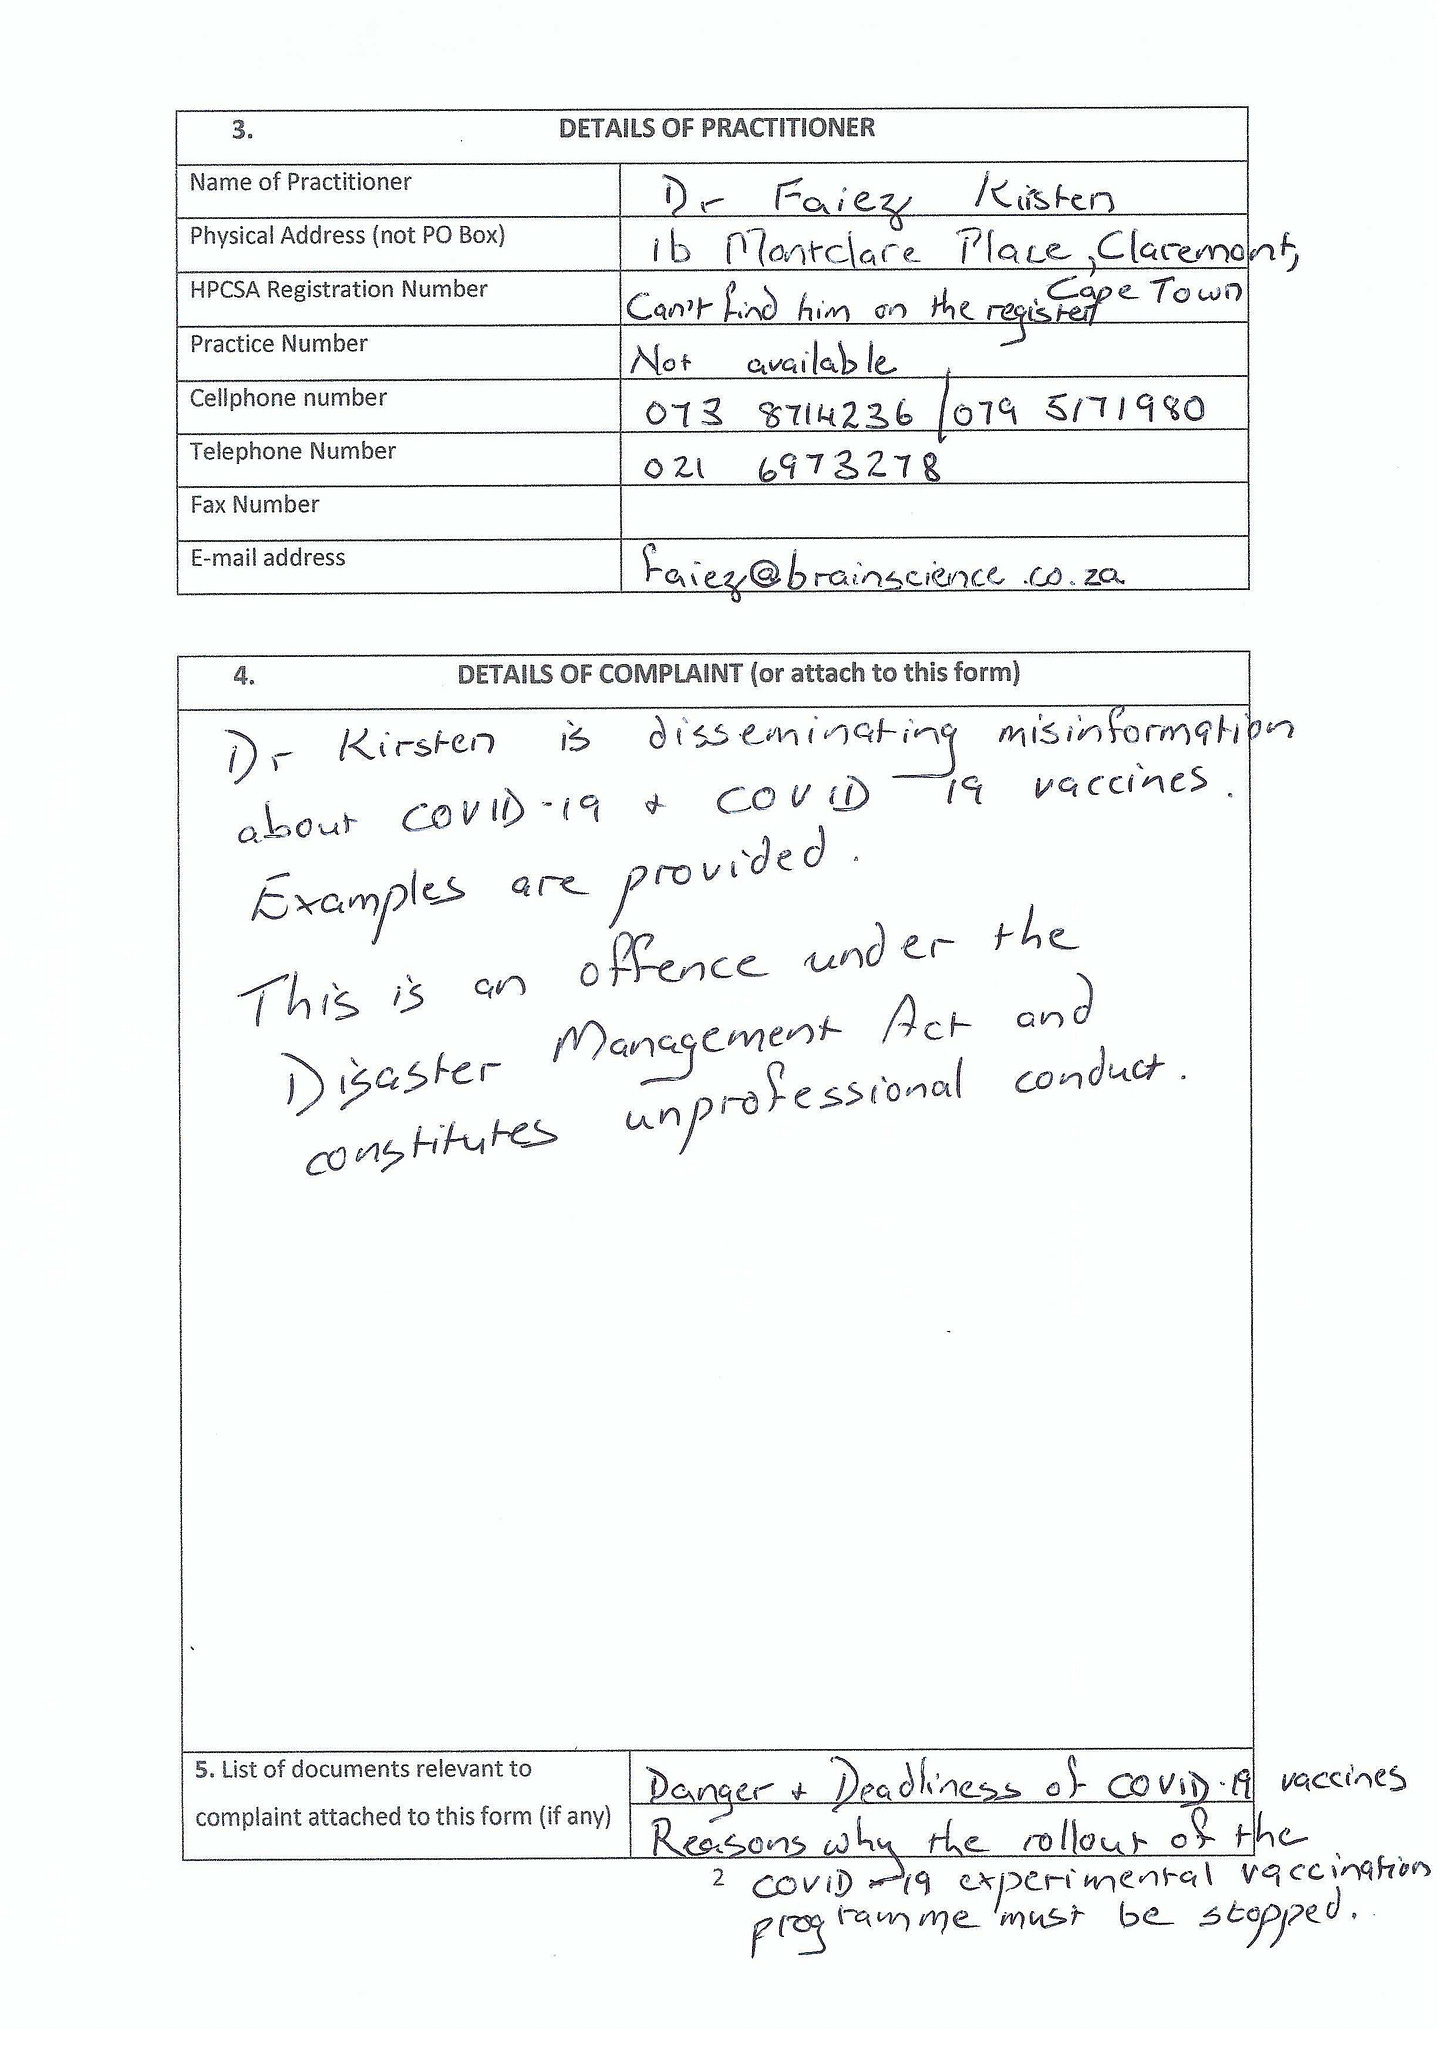 3. DETAILS OF PRACTITIONER
Name of Practitioner Dr Faiez Kirsten
Physical Address (not PO Box) 1b Montclare Place, Claremont,
Cape Town
HPCSA Registration Number Can't find him on the register
Practice Number Not available
Cellphone number 073 8714236 / 079 5171980
Telephone Number 021 6973278
Fax Number
E-mail address faiez@brainscience.co.za
4. DETAILS OF COMPLAINT (or attach to this form)
Dr Kirsten is disseminating misinformation
about COVID-19 + COVID-19 vaccines.
Examples are provided.
This is an offence under the
Disaster Management Act and
constitutes unprofessional conduct.
5. List of documents relevant to
complaint attached to this form (if any)
Danger + Deadliness of COVID-19 vaccines
Reasons why the rollout of the
COVID-19 experimental vaccination
programme must be stopped.
2